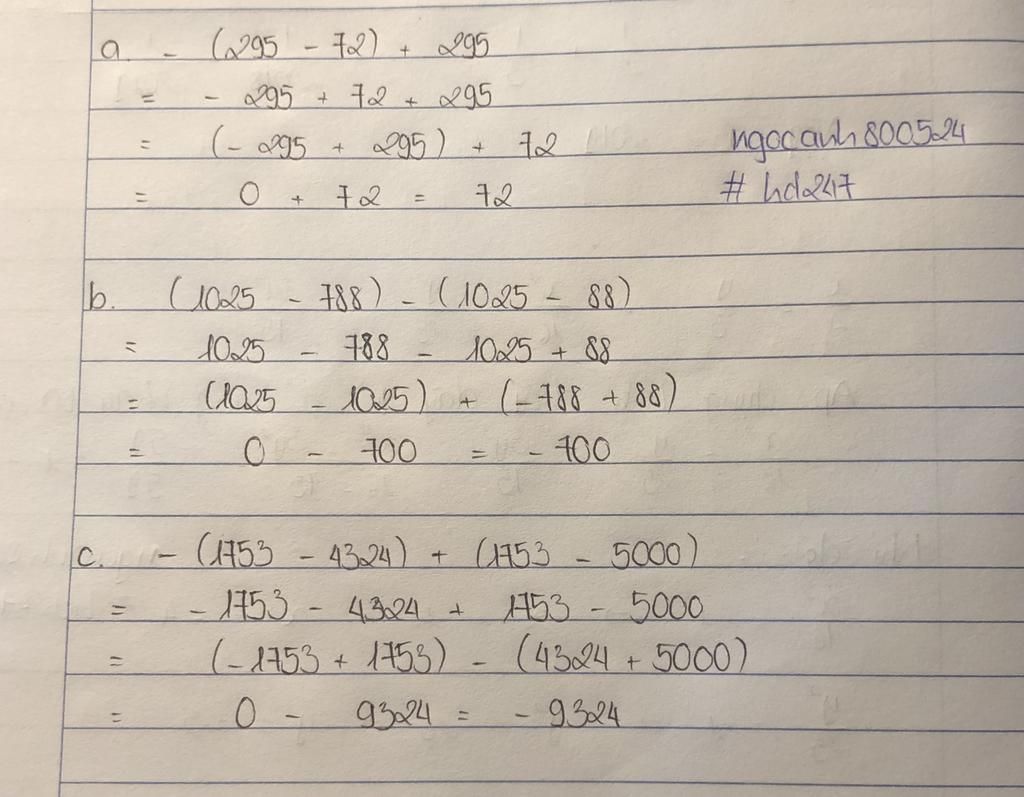 a. - (295 - 72) + 295
= - 295 + 72 + 295
= (- 295 + 295) + 72
= 0 + 72 = 72
ngocanh800524
# hd247
b. (1025 - 788) - (1025 - 88)
= 1025 - 788 - 1025 + 88
= (1025 - 1025) + (-788 + 88)
= 0 - 700 = - 700
c. - (1753 - 4324) + (1753 - 5000)
= - 1753 - 4324 + 1753 - 5000
= (-1753 + 1753) - (4324 + 5000)
= 0 - 9324 = - 9324